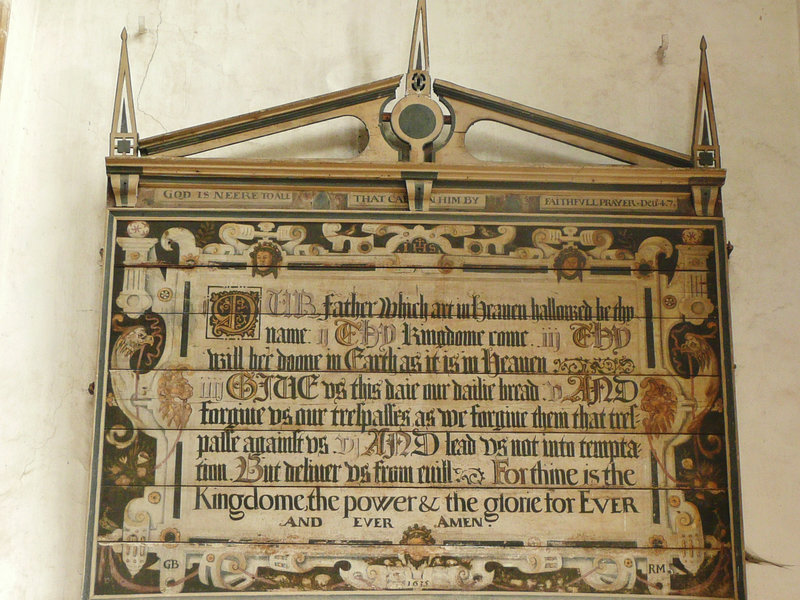 GOD IS NEERE TO ALL THAT CALL ON HIM BY FAITHFULL PRAYER. Deu: 4.7.
OUR father which art in Heauen hallowed be thy
name. ij THY kingdome come. iij THY
will bee doone in Earth as it is in Heauen
iiij GIUE vs this daie our dailie bread. v AND
forgiue vs our trespasses as we forgiue them that tres-
passe against vs. vj AND lead vs not into tempta-
tion. But deliuer vs from euill. For thine is the
Kingdome, the power & the glorie for EVER
AND EVER AMEN
GB RM
1635